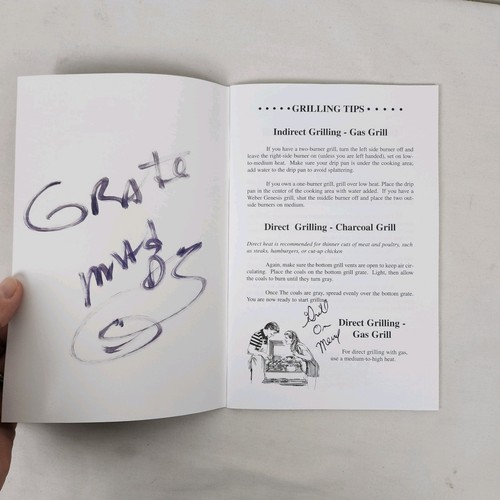 GRAte
• • • • • GRILLING TIPS • • • • •
Indirect Grilling - Gas Grill
If you have a two-burner grill, turn the left side burner off and
leave the right-side burner on (unless you are left handed), set on low-
to-medium heat. Make sure your drip pan is under the cooking area;
add water to the drip pan to avoid splattering.
If you own a one-burner grill, grill over low heat. Place the drip
pan in the center of the cooking area with water added. If you have a
Weber Genesis grill, shut the middle burner off and place the two out-
side burners on medium.
Direct Grilling - Charcoal Grill
Direct heat is recommended for thinner cuts of meat and poultry, such
as steaks, hamburgers, or cut-up chicken.
Again, make sure the bottom grill vents are open to keep air cir-
culating. Place the coals on the bottom grill grate. Light, then allow
the coals to burn until they turn gray.
Once The coals are gray, spread evenly over the bottom grate.
You are now ready to start grilling.
Grill
On
Direct Grilling -
Gas Grill
For direct grilling with gas,
use a medium-to-high heat.